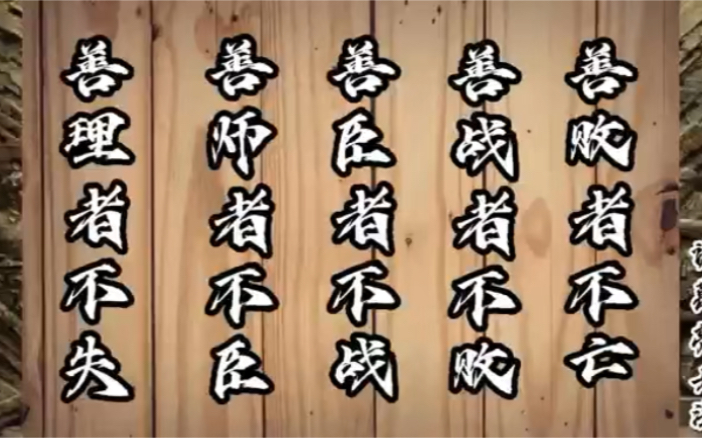 善理者不失
善师者不臣
善臣者不战
善战者不败
善败者不亡